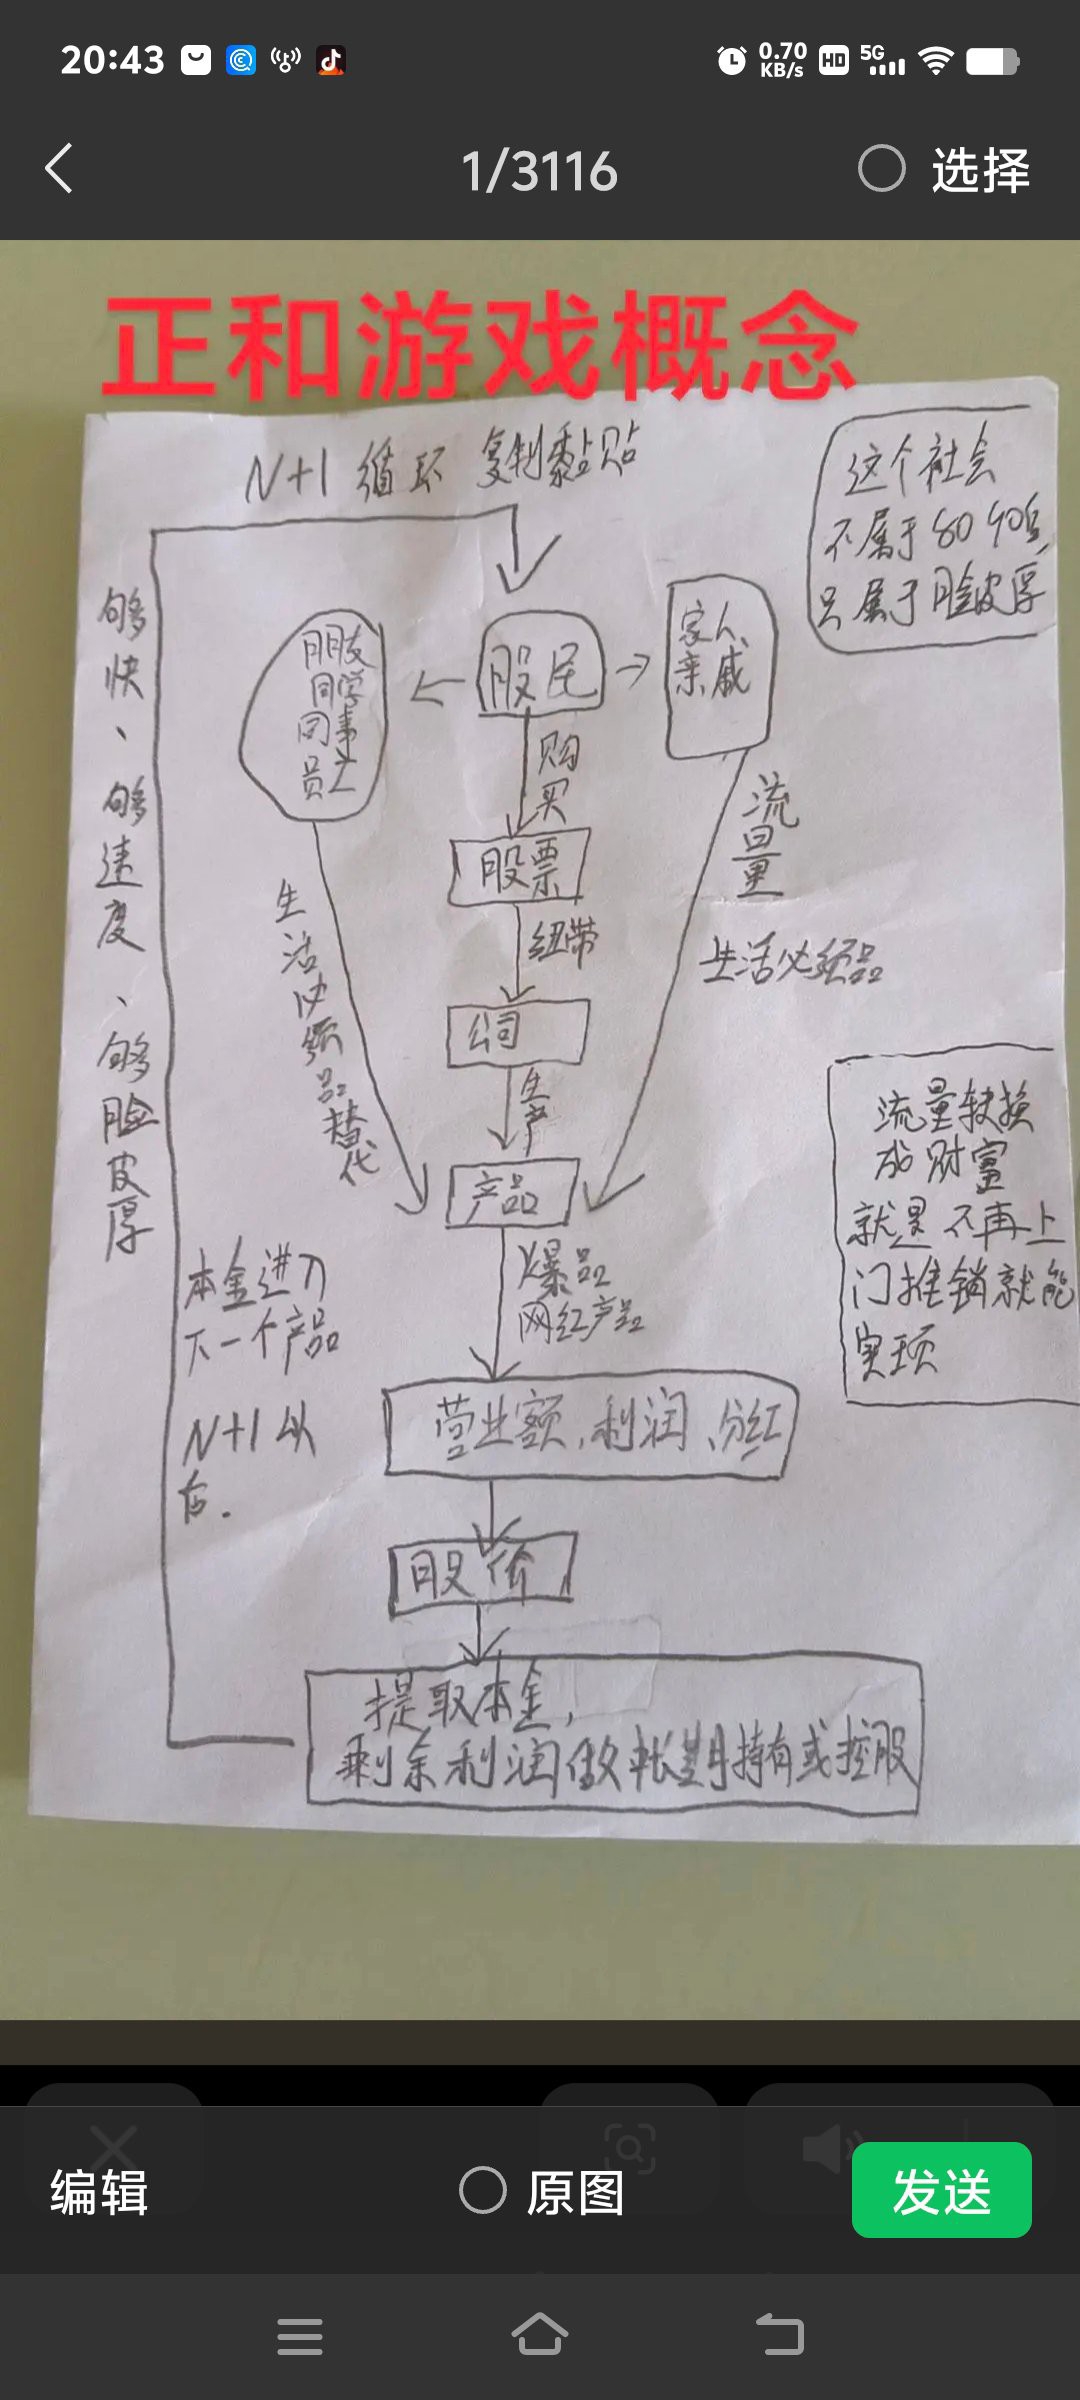 20:43
0.70
KB/s
HD
5G
1/3116
选择
正和游戏概念
N+1 循环 复制黏贴
这个社会
不属于80 90后
只属于脸皮厚
够快、够速度、够脸皮厚
朋友
同学
同事
员工
股民
家人
亲戚
购买
流量
股票
纽带
生活必须品替代
生活必须品
公司
生产
流量转换
成财富
就是不再上
门推销就能
实现
产品
爆品
网红产品
本金进入
下一个产品
N+1以
后.
营业额,利润、分红
股价
提取本金,
剩余利润做长期持有或控股
编辑
原图
发送